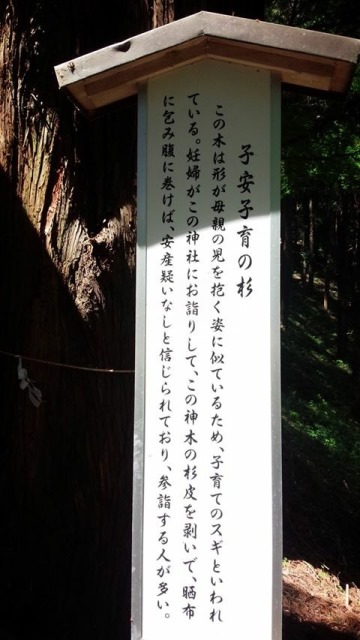 子安子育の杉
この木は形が母親の児を抱く姿に似ているため、子育てのスギといわれ
ている。妊婦がこの神社にお詣りして、この神木の杉皮を剥いで、晒布
に包み腹に巻けば、安産疑いなしと信じられており、参詣する人が多い。